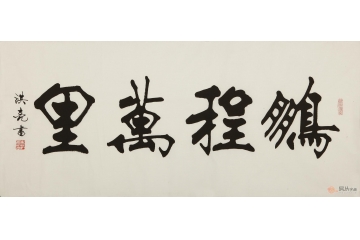 鵬程萬里
洪亮書